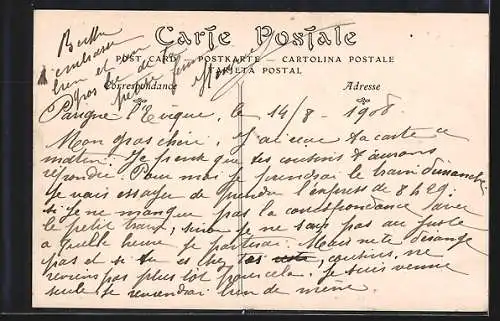 Carte Postale
POST CARD - POSTKARTE - CARTOLINA POSTALE
TARJETA POSTAL
Correspondance
Adresse
bien et bon
gros de ta
petite femme
Parigné l'Evêque, le 14/8 - 1908
Mon gros chéri, J'ai eue ta carte ce
matin. Je pense que tes cousins t'aurons
répondu. Pour moi je prendrai le train dimanche
Je vais essayer de prendre l'express de 8h29;
si je ne manque pas la correspondance avec
le petit train, sinon je ne sais pas au juste
à quelle heure je partirai. Mais ne te dérange
pas et si tu es chez tes cousins, ne
reviens pas plus tôt pour cela. Je suis venue
seule je reviendrai bien de même.